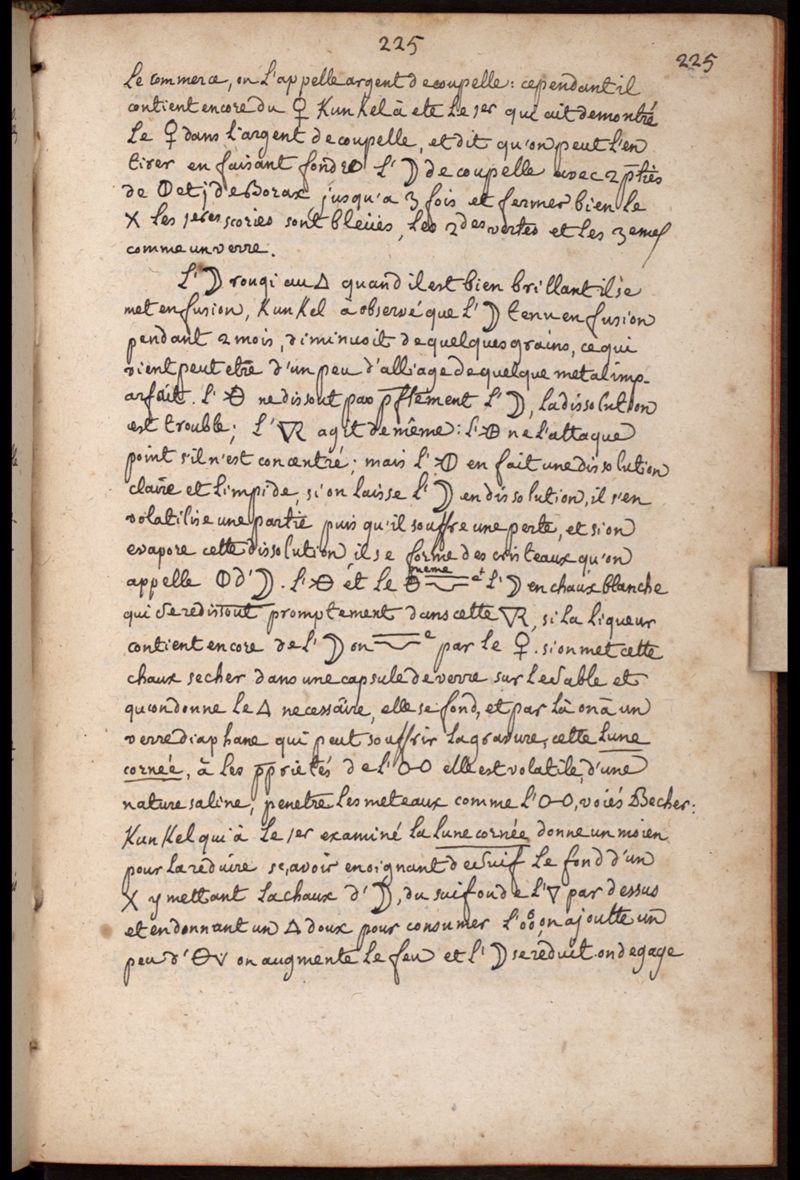 225
225
Le commerce, on l'appelle argent de coupelle : cependant il
contient encore du ♀ Kunkel à eté le 1er qui ait demontré
Le ♀ dans l'argent de coupelle, et dit qu'on peut l'en
tirer en faisant fondre l'☽ de coupelle avec 2 pties
de et j de Borax jusqu'a 3 fois et fermer bien le
X les 1eres scories sont bleües, les 2des vertes et les 3emes
comme un verre.
L'☽ rougi au △ quand il est bien brillant il se
met en fusion, Kunkel à observé que l'☽ tenu en fusion
pendant 2 mois, diminuoit de quelques grains, ce qui
vient peut etre d'un peu d'alliage de quelque metal imp-
arfait. L' ne dissout pas pftement l'☽, la dissolution
est trouble ; l'🜆 agit de même : l' ne l'attaque
point s'il n'est concentré ; mais l' en fait une dissolution
claire et limpide, si on laisse l'☽ en dissolution, il s'en
volatilise une partie puis qu'il souffre une perte, et si on
evapore cette dissolution il se forme des cristeaux qu'on
appelle d'☽. L' et le l'☽ en chaux blanche
qui se redissout promptement dans cette 🜆, si la liqueur
contient encore de l'☽ on par le ♀. si on met cette
chaux secher dans une capsule de verre sur le sable et
qu'on donne le △ necessaire, elle se fond, et par là on à un
verre diaphane qui peut souffrir la gravure, cette Lune
cornée, à les pprietés de l'o-o elle est volatile, d'une
nature saline, penetre les meteaux comme l'o-o, voiés Becher :
Kunkel qui à le 1er examiné la Lune cornée donne un moien
pour la reduire scavoir en oignant de suif le fond d'un
X y mettant la chaux d'☽, du suif ou de l'▽ par dessus
et en donnant un △ doux pour consumer l' on ajoutte un
peu d' on augmente le feu et l'☽ se reduit. on degage